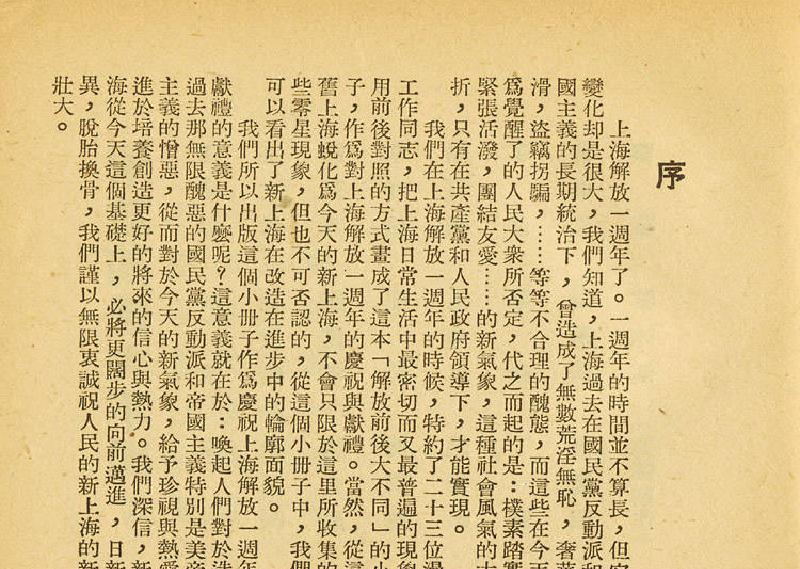 序
上海解放一週年了。一週年的時間並不算長，但
變化却是很大，我們知道，上海過去在國民黨反動派和
國主義的長期統治下，曾造成了無數荒淫無恥，奢
滑，盜竊拐騙，……等等不合理的醜態，而這些在今
爲覺醒了的人民大衆所否定，代之而起的是：樸素踏
緊張活潑，團結友愛……的新氣象，這種社會風氣的
折，只有在共產黨和人民政府領導下，才能實現。
我們在上海解放一週年的時候，特約了二十三位
工作同志，把上海日常生活中最密切而又最普遍的現
用前後對照的方式畫成了這本「解放前後大不同」的小
子，作爲對上海解放一週年的慶祝與獻禮。當然，從這
舊上海蛻化爲今天的新上海，不會只限於這里所收集的
些零星現象，但也不可否認的，從這個小冊子中，我們
可以看出了新上海在改造在進步中的輪廓面貌。
我們所以出版這個小冊子作爲慶祝上海解放一週年
獻禮的意義是什麽呢？這意義就在於：喚起人們對於
過去那無限醜惡的國民黨反動派和帝國主義特別是美帝
主義的憎惡，從而對於今天的新氣象，給予珍視與熱愛
進於培養創造更好的將來的信心與熱力。我們深信，新
海從今天這個基礎上，必將更闊步的向前邁進，日新
異，脫胎換骨，我們謹以無限衷誠祝人民的新上海的新
壯大。